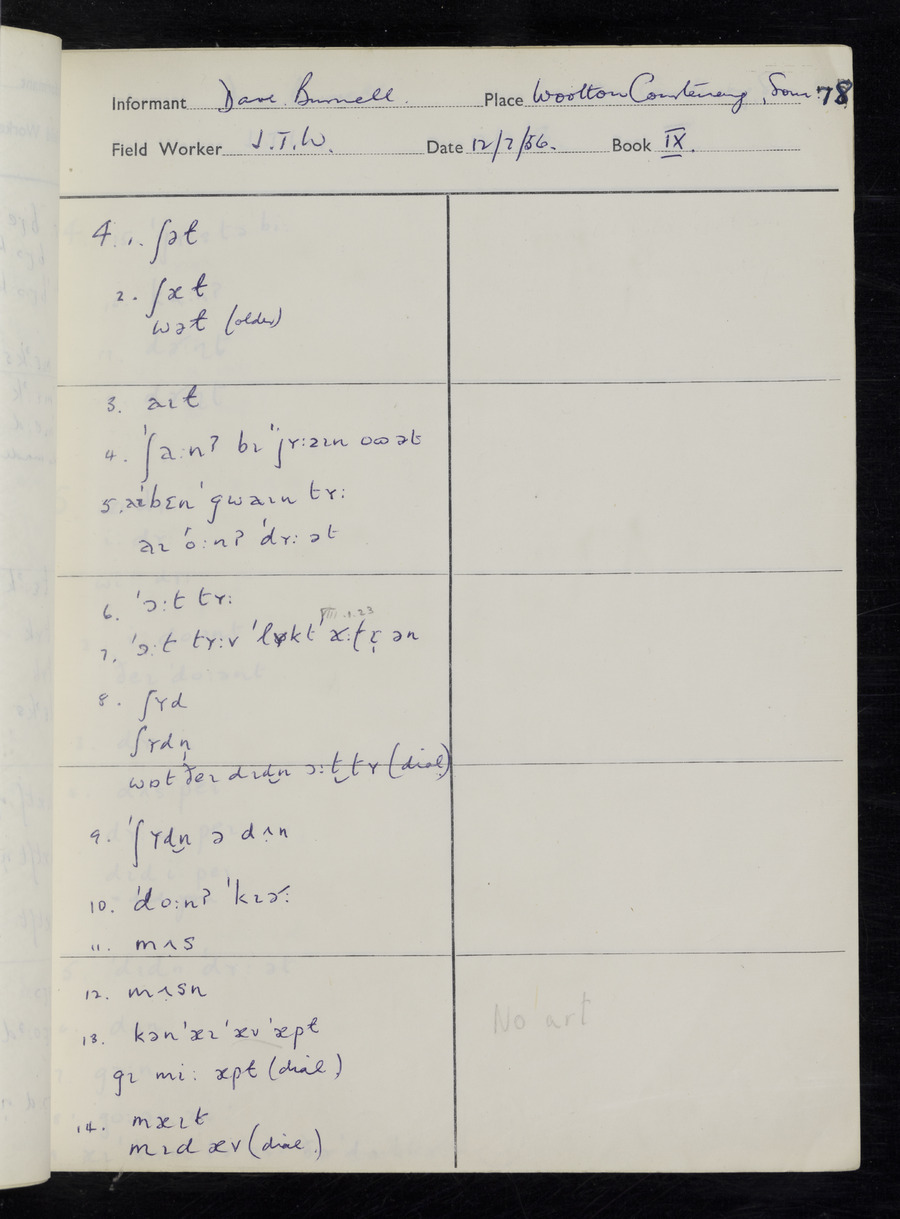 Informant Dave Burnell. Place Wootton Courtenay, Som. 78
Field Worker J.T.W. Date 12/7/56. Book IX.
4. 1. ʃət
2. ʃæt
wət (older)
3. aɪt
4. ˈʃa:nʔ bɪ
5. aɪ bɛn ˈgwaɪn tʏ:
aɪ ˈo:nʔ ˈdʏ: ət
6. ˈɔ:t tʏ:
VIII.1.23
7. ˈɔ:t tʏ:v
8. ʃʏd
ʃʏdn̩
wɒt ðeɪ dɪdn̩ ɔ:t tʏ (dial.)
9. ˈʃʏdn̩ ə dʌn
10. ˈdo:nʔ ˈkɪə˞:
11. mʌs
12. mʌsn
13. kən ˈæɪ ˈæv ˈæpt
gɪ mi: æpt (dial.)
No art
14. mæɪt
mɪd æv (dial.)